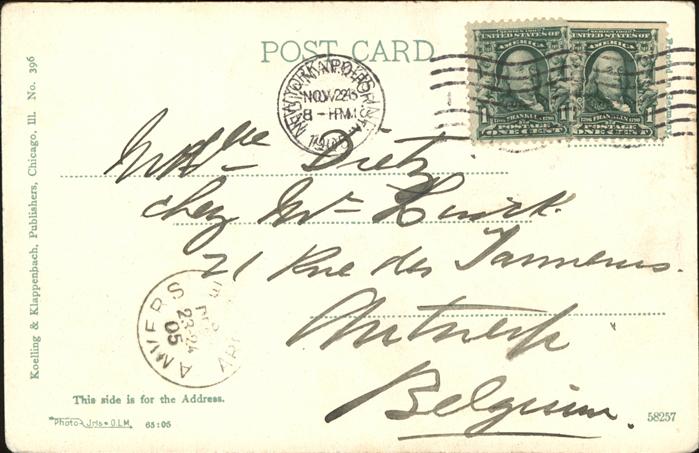 POST CARD
NEW YORK, N.Y.
NOV 26
8 - PM
1905
SERIES 1902
UNITED STATES OF
AMERICA
FRANKLIN
ONE CENT
SERIES 1902
UNITED STATES OF
AMERICA
FRANKLIN
ONE CENT
Mlle Dietz
chez Mr
21 Rue des Tanneurs.
Antwerp
Belgium.
ANVERS
23-24
05
This side is for the Address.
Photo-Jrls-O.L.M. 65:05
58257
Koelling & Klappenbach, Publishers, Chicago, Ill. No. 396
Printed in Germany